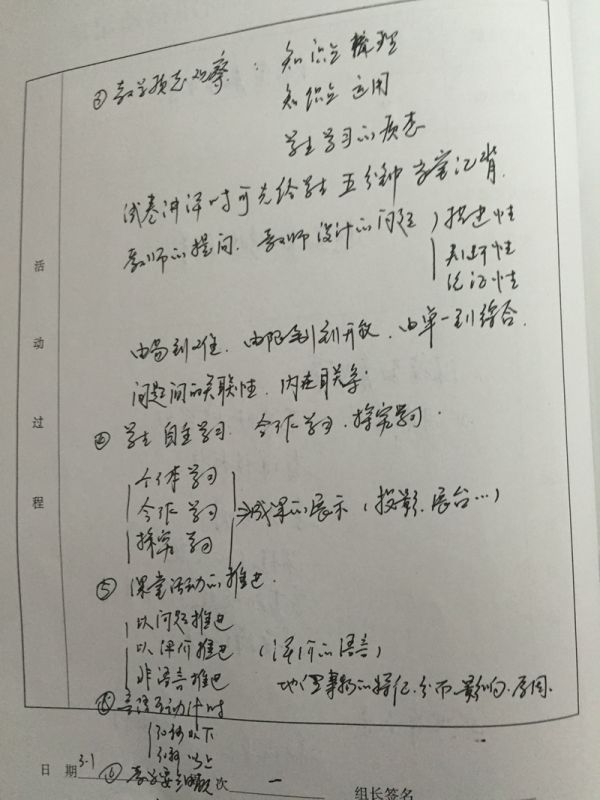 ③ 教学预志观察： 知识点 梳理
知识点 运用
学生学习的质态
试卷讲评时可先给学生五分钟 记背.
教师的提问. 教师设计的问题 推进性
判断性
论证性
由易到难. 由限制到开放. 由单一到综合.
问题间的关联性. 内在联系
④ 学生 自主学习. 合作学习. 探究学习.
个体学习
合作学习 成果的展示 (投影. 展台…)
探究学习
⑤ 课堂活动的推进.
以问题推进
以评价推进 (评价的语言)
非语言推进 地理事物的特征. 分布. 影响. 原因.
⑥ 言语互动计时
30秒以下
30秒以上
活动过程
日 期 3.1 ⑥ 教学 次 一 组长签名